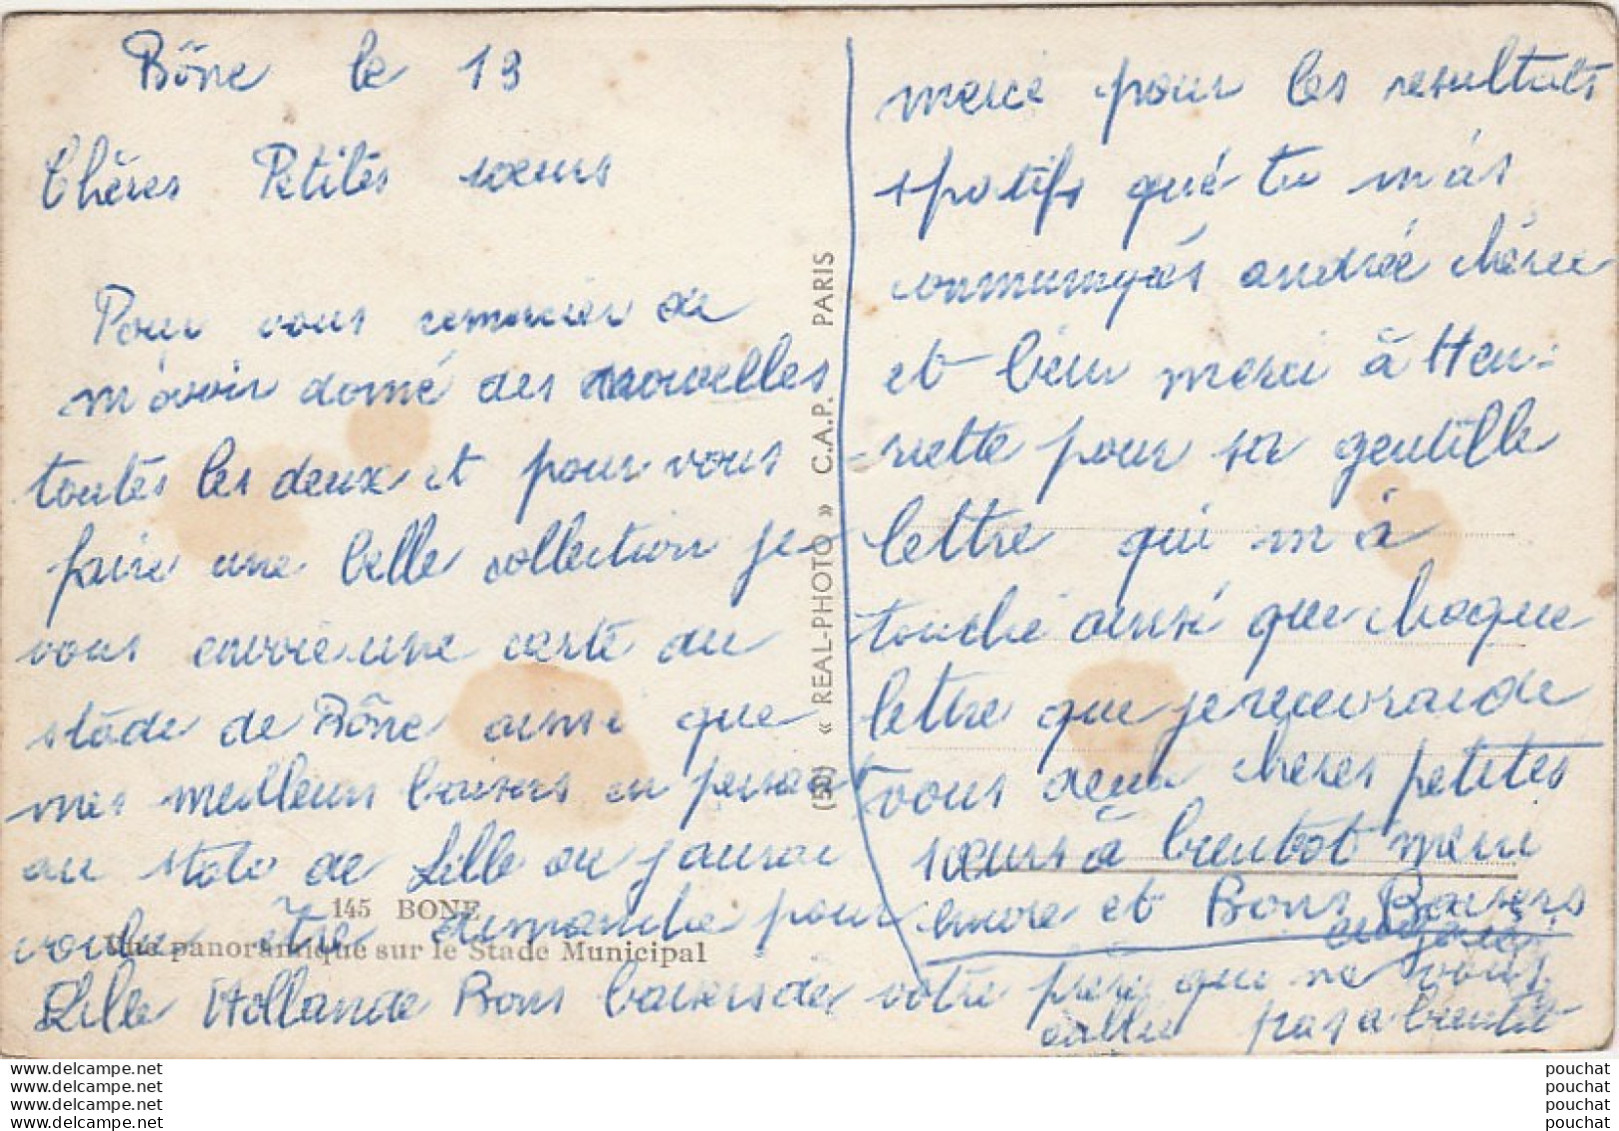 Bône le 19
Chères Petites sœurs
Pour vous remercier de
m'avoir donné des nouvelles
toutes les deux et pour vous
faire une belle collection je
vous envoie une carte du
stade de Bône ainsi que
mes meilleurs baisers en pensant
au stade de Lille ou j aurai
voulu être dimanche pour
Lille Hollande Bons baisers de votre frère que ne vous
oublie pas a bientôt
merci pour les resultats
sportifs qué tu m'as
andrée chérie
et bien merci à Hen-
riette pour sa gentille
lettre qui m à
touché ainsi que chaque
lettre que je recevrai de
vous deux chères petites
sœurs à bientot merci
encore et Bons Baisers
145 BONE
Vue panoramique sur le Stade Municipal
(50) « REAL-PHOTO » C.A.P. PARIS
www.delcampe.net
www.delcampe.net
www.delcampe.net
www.delcampe.net
pouchat
pouchat
pouchat
pouchat